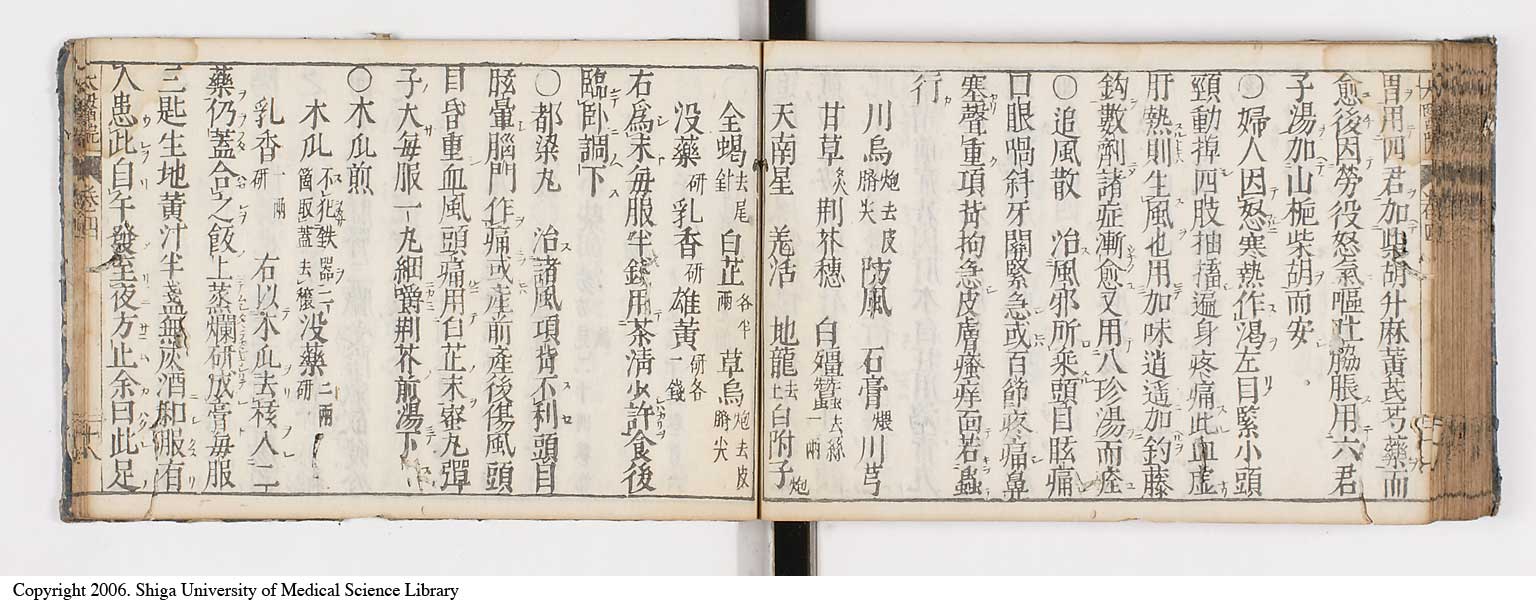 胃用四君加柴胡升麻黃芪芍藥而
愈後因勞役怒氣嘔吐脇脹用六君
子湯加山梔柴胡而安
〇婦人因怒寒熱作渴左目緊小頭
頸動掉四肢抽搐遍身疼痛此血虛
肝熱則生風也用加味逍遥加鈎藤
鈎數劑諸症漸愈又用八珍湯而痊
〇追風散 治風邪所乘頭目眩痛
口眼喎斜牙關緊急或百節疼痛鼻
寒聲重項背拘急皮膚瘙痒面若蟲
行
川烏炮去皮臍尖 防風 石膏煨 川芎
甘草炙 荆芥穗 白殭蠶去絲一兩
天南星 羗活 地龍去土 白附子炮
全蝎去尾針 白芷各半兩 草烏炮去皮臍尖
没藥研 乳香研 雄黃研各一錢
右爲末毎服半錢用茶清少許食後
臨卧調下
〇都梁丸 治諸風項背不利頭目
眩暈腦門作痛或產前產後傷風頭
目昏重血風頭痛用白芷末蜜丸彈
子大毎服一丸細嚼荆芥煎湯下
〇木瓜煎
木瓜不犯鉄器二箇取蓋去穰 没藥二兩研
乳香一兩研 右以木瓜去穰入二
藥仍蓋合之飯上蒸爛研成膏毎服
三匙生地黃汁半盞無灰酒和服有
人患此自午發至夜方止余曰此足
Copyright 2006. Shiga University of Medical Science Library